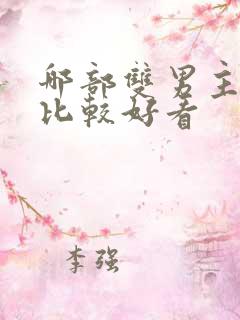 那部雙男主
比較好看
李强